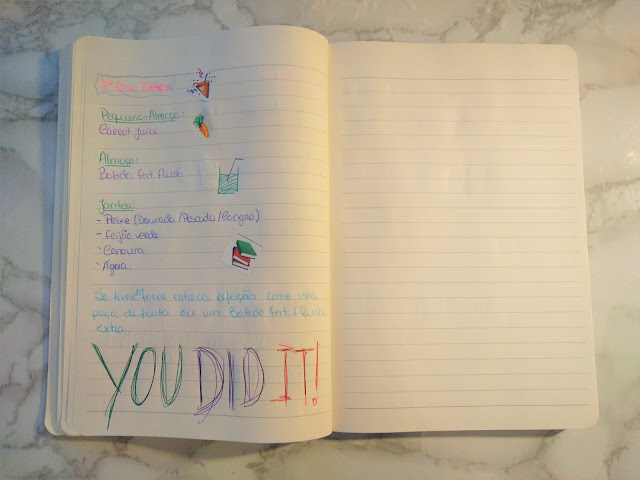 7º Dia Detox
Pequeno-Almoço:
Carrot Juice
Almoço:
Batido fat flush
Jantar:
- Peixe (Dourada/Pescada/Congro)
- Feijão verde
- Cenoura
- Água.
Se tiver fome entre as refeição come uma
peça de fruta ou um Batido fat flush
extra.
YOU DID IT!